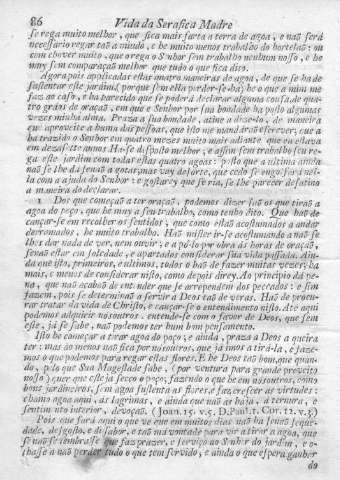 86 Vida da Serafica Madre
se rega muito melhor, que fica mais farta a terra de agoa, e naõ serâ
necessario regar taõ a miudo, e he muito menos trabalho do hortelaõ: ou
com chover muito, que o rega o Snhor sem trabalho nenhum nosso, e he
muy sem comparaçaõ melhor que tudo o que fica dito.
Agora pois applicadas estas quatro maneiras de agoa, de que se ha de
sustentar este jardim (porque sem ella perder-se-ha) he o que a mim me
faz ao caso, e ha parecido que se poderá declarar alguma cousa de qua-
tro gráos de oraçaõ, em que o Senhor por sua bondade ha posto algumas
vezes minha alma. Praza a sua bondade, atine a dizelo, de maneira
que aproveite a huma das pessoas, que isto me mandráõ escrever, que a
ha trazido o Senhor em quatro mezes muito mais adiante que eu estava
em dezasete annos. Ha-se disposto melhor, e assim sem trabalho seu re-
ga este jardim com todas estas quatro agoas: posto que a ultima ainda
naõ se lhe dá senaõ a gotas; mas vay de sorte, que cedo se engolfará nel-
la com a ajuda do Senhor: e gostarey que se ria, se lhe parecer desatino
a maneira do declarar.
1 Dos que começaõ a ter oraçaõ, podemos dizer saõ os que tiraõ a
agoa do poço, que he muy a seu trabalho, como tenho dito. Que haõ de
cançar-se em recolher os sentidos, que como estaõ acostumados a andar
derramados, he muito trabalho. Haõ mister ir-se acostumando a naõ se
lhes dar nada de ver, nem ouvir; e a pô-lo por obra ás horas de oraçaõ,
senaõ estar em soledade, e apartados considerar sua vida passada. Ain-
da que isto, primeiros, e ultimos, todos o haõ de fazer muitas vezes; ha
mais, e menos de considerar nisto, como depois direy. Ao principio dá pe-
na, que naõ acabaõ de entender que se arrependem dos peccados: e sim
fazem, pois se determinaõ a servir a Deos taõ de veras. Haõ de procu-
rar tratar da vida de Christo, e cançar-se o entendimento nisto. Ate aqui
podemos adquirir nósoutros: entende-se com o favor de Deos, que sem
este, já se sabe, naõ podemos ter hum bom pensamento.
Isto he começar a tirar agoa do poço; e ainda, praza a Deos a queira
ter: mas ao menos naõ fica por nósoutros, que já imos a tirá-la, e faze-
mos o que podemos para regar estas flores. E he Deos taõ bom, que quan-
do, pelo que Sua Magestade sabe, (por ventura para grande proveito
nosso) quer que esteja secco o poço; fazendo o que he em nósoutros, como
bons jardineiros, sem agoa sustenta as flores, e faz crescer as virtudes:
chamo agoa aqui, as lagrimas, e ainda que naõ as haja, a ternura, e
sentimento interior, devoçaõ. (Joan. 15. v. 5. D. Paul. 1. Cor. 12. v. 3.)
Pois que fará aqui o que ve que em muitos dias naõ ha senaõ seque-
dade, desgosto, e disabor, e taõ má vontade para vir a tirar a agoa, que
se naõ se lembrasse que faz prazer, e serviço ao Senhor do jardim, e o-
lhasse a naõ perder tudo o que tem servido, e ainda o que espera ganhar
do